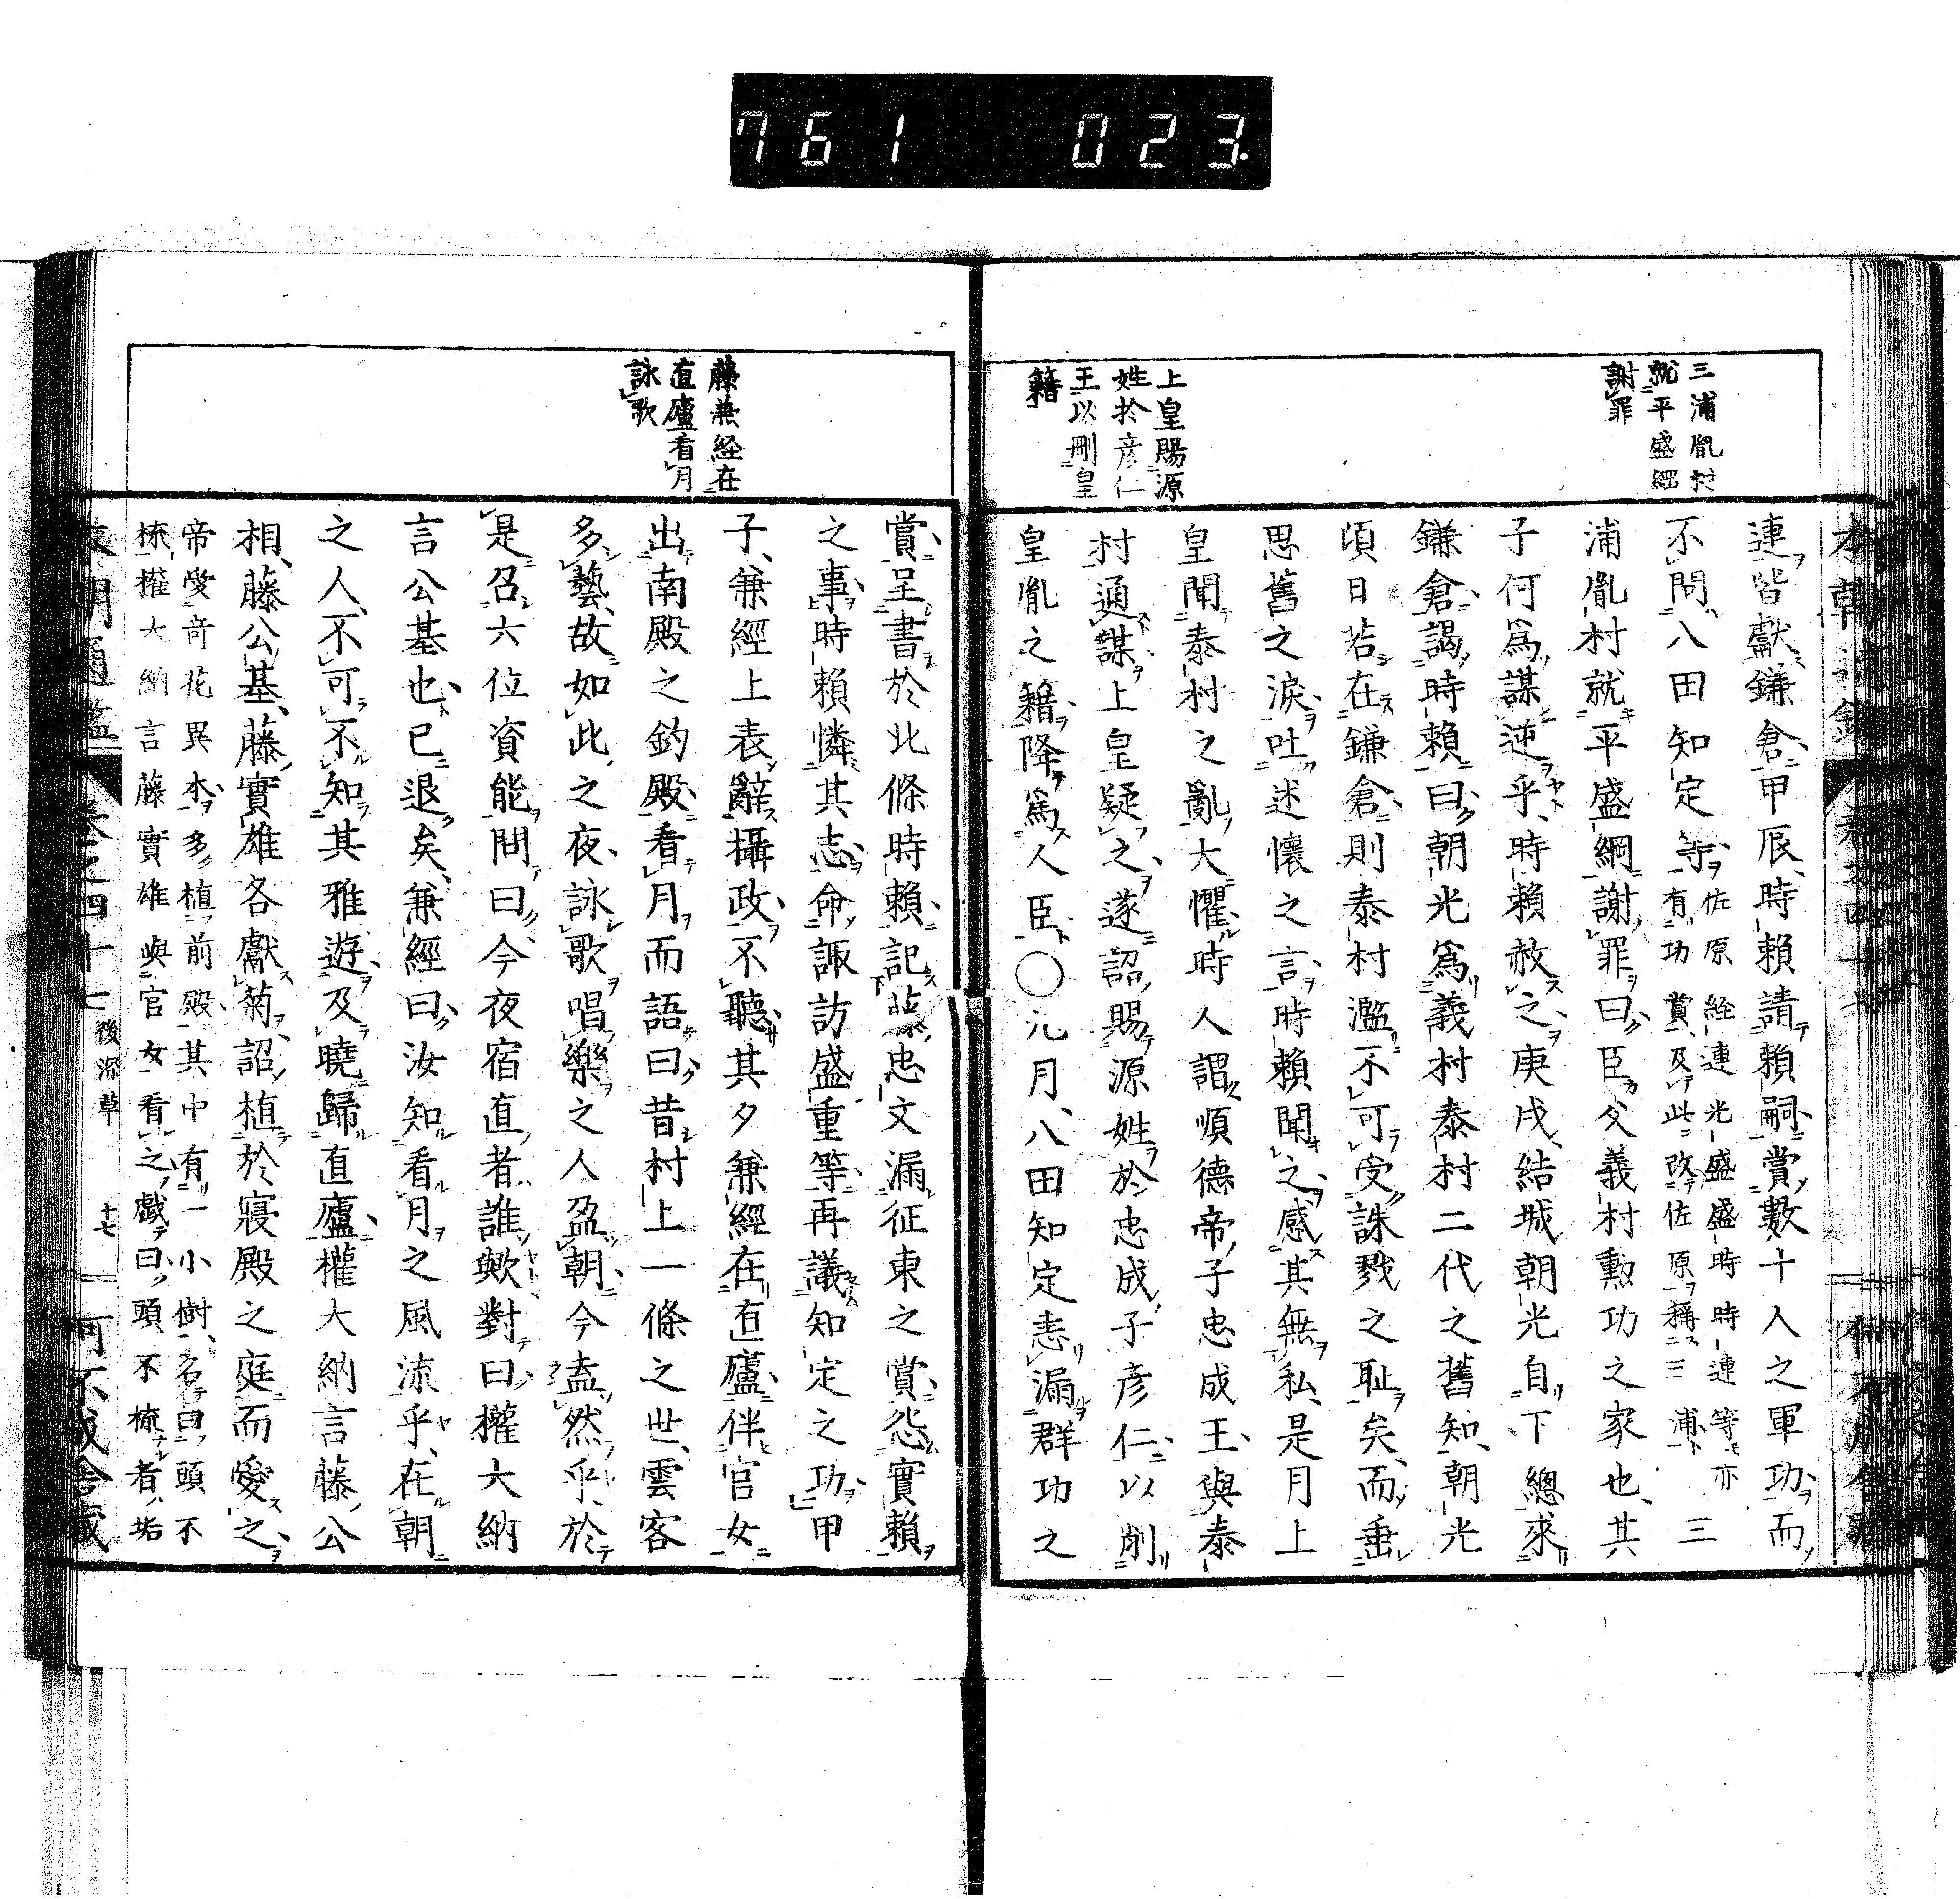 761 023
三浦胤村
就平盛經
謝罪
上皇賜源
姓於彦仁
王以刪皇
籍
連皆獻鎌倉甲辰時頼請頼嗣賞數十人之軍功而
不問八田知定等佐原経連光盛盛時時連等亦有功賞及此改佐原稱三浦三
浦胤村就平盛綱謝罪曰臣父義村勲功之家也其
子何爲謀逆乎時頼赦之庚戌結城朝光自下總來
鎌倉謁時頼曰朝光爲義村泰村二代之舊知朝光
頃日若在鎌倉則泰村濫不可受誅戮之耻矣而垂
思舊之涙吐述懷之言時頼聞之感其無私是月上
皇聞泰村之亂大懼時人謂順德帝子忠成王與泰
村通謀上皇疑之遂詔賜源姓於忠成子彦仁以削
皇胤之籍降爲人臣〇九月八田知定恚漏群功之
藤兼経在
直廬看月
詠歌
賞呈書於北條時頼記藤忠文漏征東之賞怨實頼
之事時頼憐其志命諏訪盛重等再議知定之功甲
子兼經上表辭攝政不聽其夕兼經在直廬伴官女
出南殿之釣殿看月而語曰昔村上一條之世雲客
多藝故如此之夜詠歌唱樂之人盈朝今盍然乎於
是召六位資能問曰今夜宿直者誰歟對曰權大納
言公基也已退矣兼經曰汝知看月之風流乎在朝
之人不可不知其雅遊及曉歸直廬權大納言藤公
相藤公基藤實雄各獻菊詔植於寢殿之庭而愛之
帝愛奇花異木多植前殿其中有一小樹名曰頭不
梳權大納言藤實雄與官女看之戲曰頭不梳者垢
本朝通鑑 卷之四十七 後深草 十七